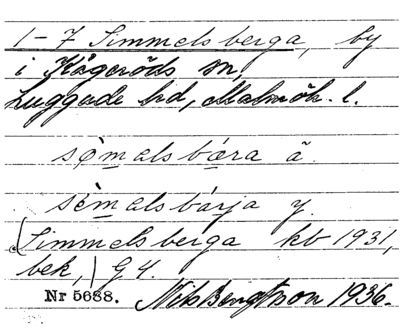 1-7 Simmelsberga, by
i Kågeröds sn,
Luggude hd, Malmöh. l.
sømalsbæra ä.
sèmalsbárja y.
(Simmelsberga kb 1931,
bek,) G4.
Nr 5688. Nils Bengtsson 1936.